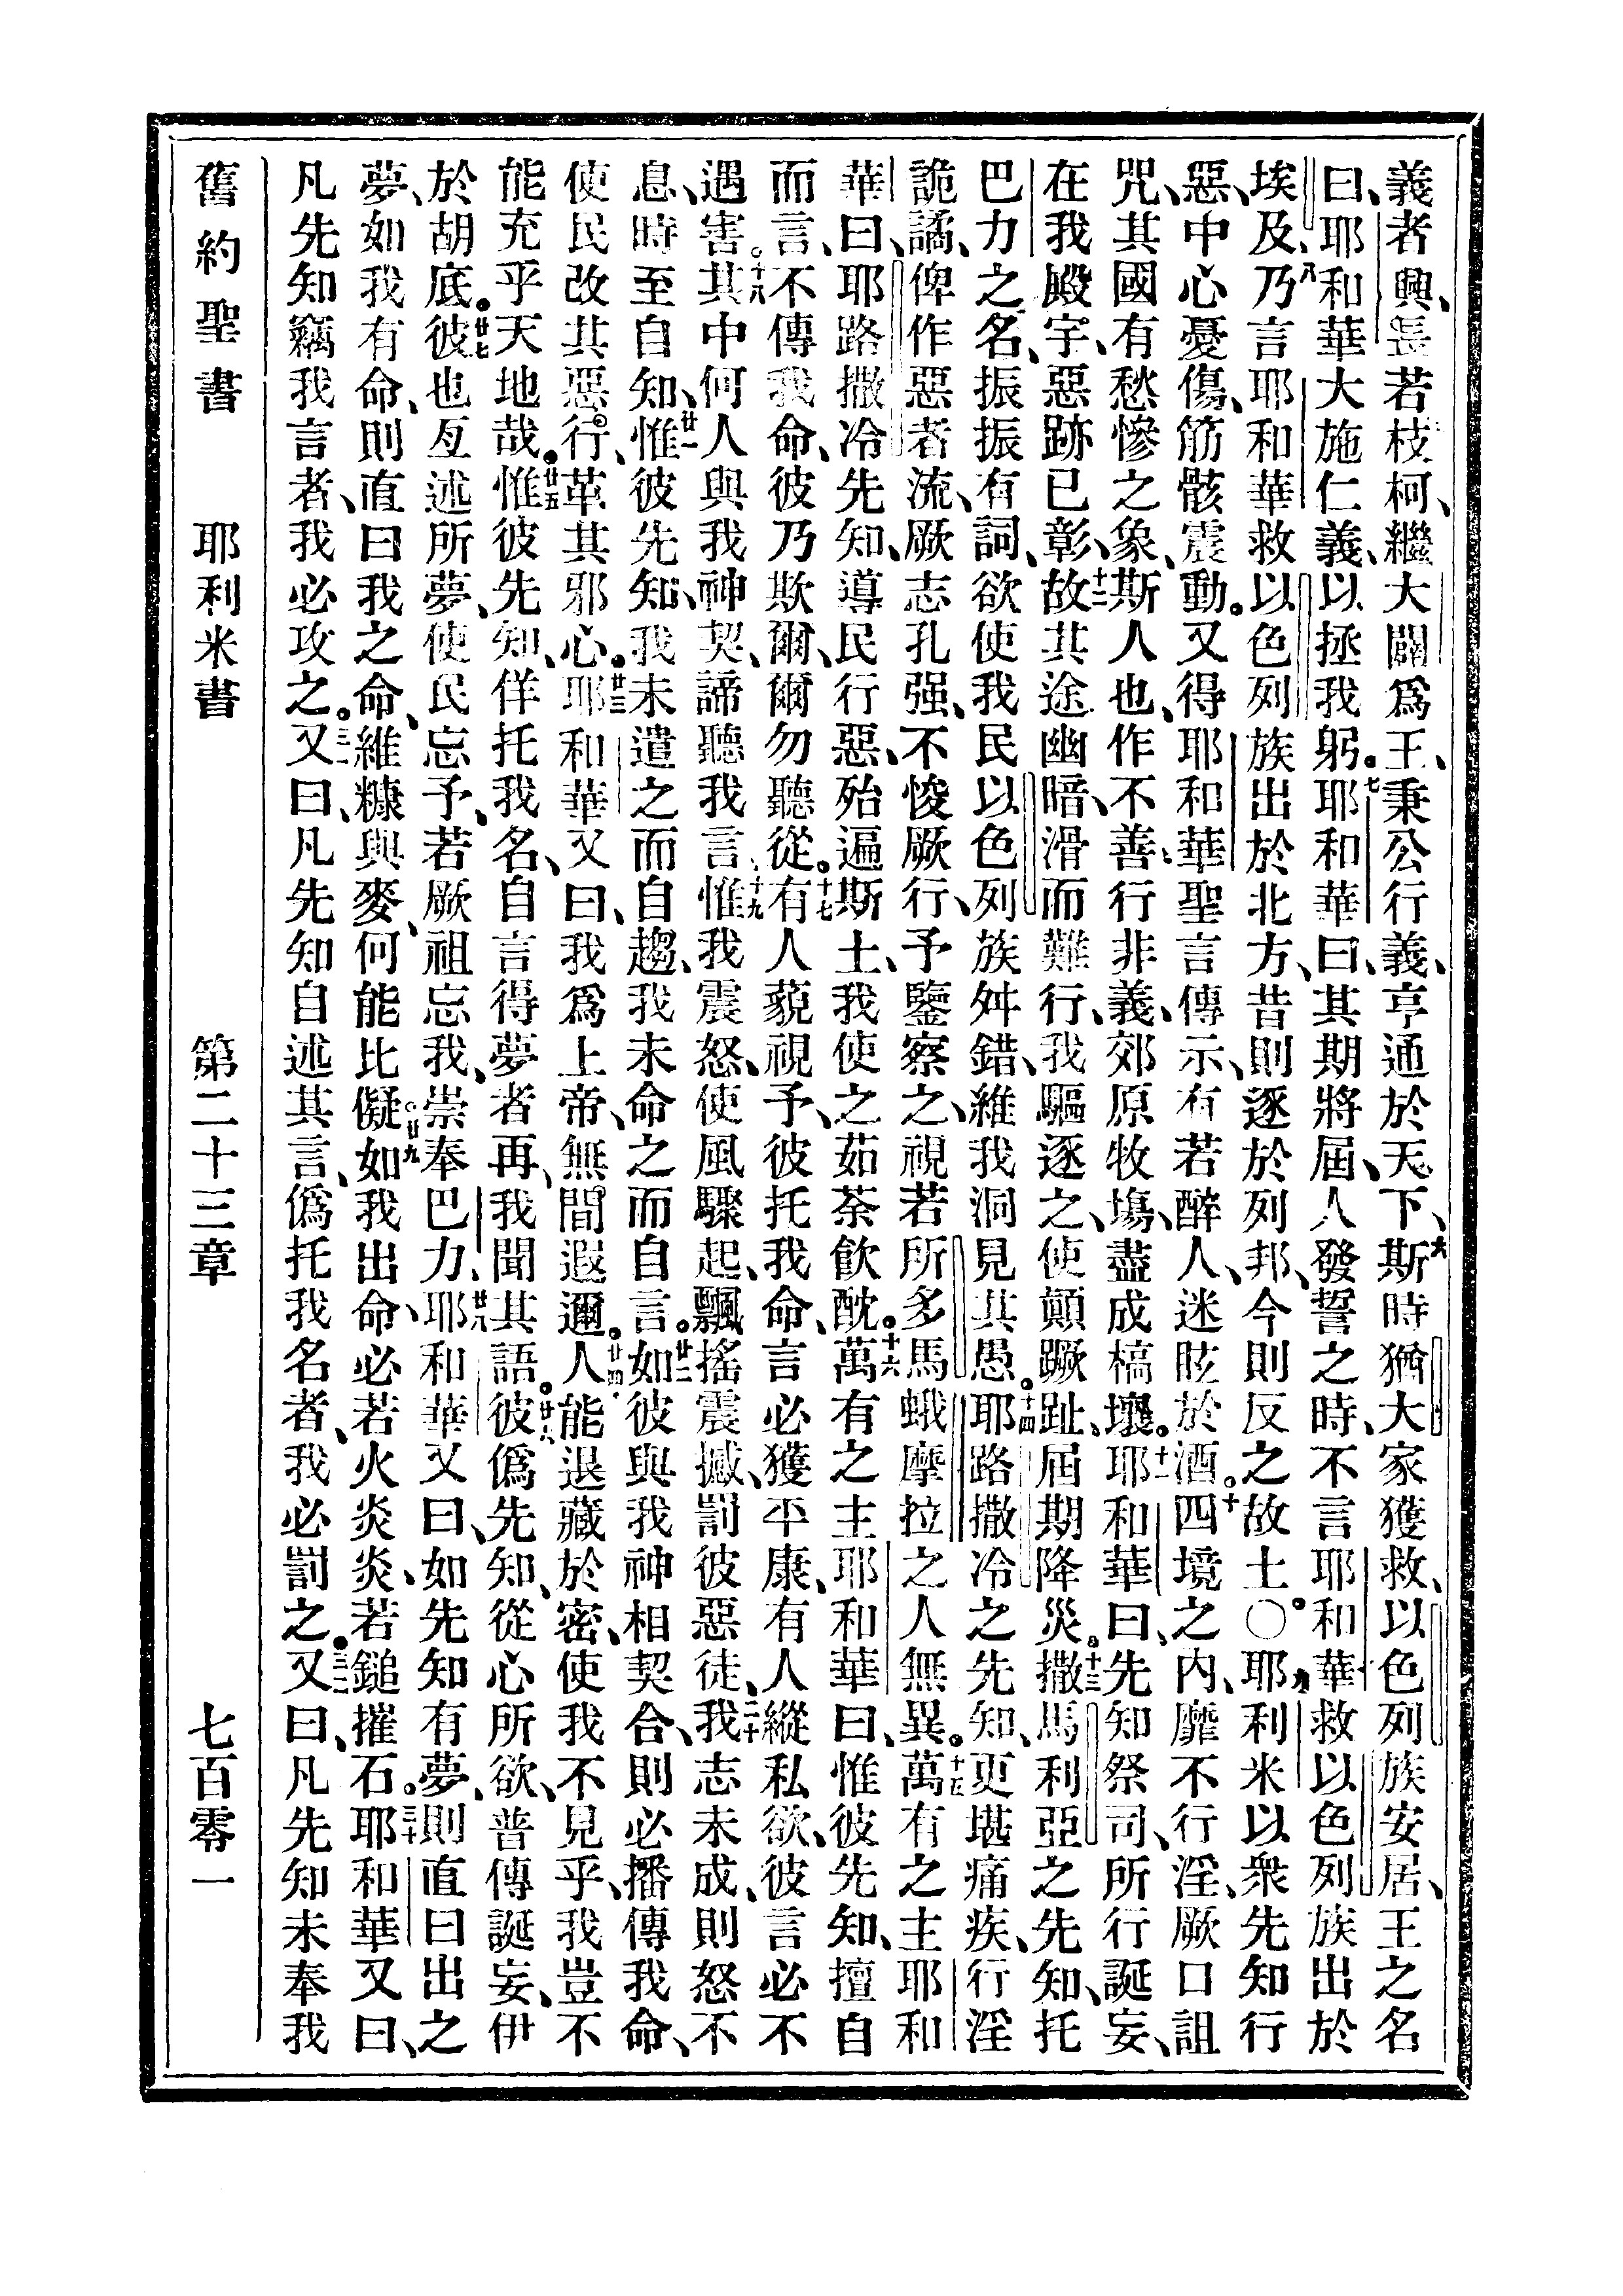 義者興、長若枝柯、繼大闢爲王、秉公行義、亨通於天下、六斯時猶大家獲救、以色列族安居、王之名
曰、耶和華大施仁義、以拯我躬。七耶和華曰、其期將屆、人發誓之時、不言耶和華救以色列族出於
埃及、八乃言耶和華救以色列族出於北方、昔則逐於列邦、今則反之故土。〇九耶利米以衆先知行
惡、中心憂傷、筋骸震動。又得耶和華聖言傳示、有若醉人、迷眩於酒。十四境之內、靡不行淫、厥口詛
咒、其國有愁慘之象、斯人也、作不善、行非義、郊原牧塲、盡成槁壤。十一耶和華曰、先知祭司、所行誕妄、
在我殿宇、惡跡已彰、十二故其途幽暗、滑而難行、我驅逐之、使顛蹶趾、屆期降災。十三撒馬利亞之先知、托
巴力之名、振振有詞、欲使我民以色列族舛錯、維我洞見其愚。十四耶路撒冷之先知、更堪痛疾、行淫
詭譎、俾作惡者流、厥志孔强、不悛厥行、予鑒察之、視若所多馬蛾摩拉之人無異。十五萬有之主耶和
華曰、耶路撒冷先知、導民行惡、殆遍斯土、我使之茹荼飮酖。十六萬有之主耶和華曰、惟彼先知、擅自
而言、不傳我命、彼乃欺爾、爾勿聽從。十七有人藐視予、彼托我命、言必獲平康、有人縱私欲、彼言必不
遇害。十八其中何人與我神契、諦聽我言、十九惟我震怒、使風驟起、飄搖震撼、罰彼惡徒、二十我志未成、則怒不
息、時至自知、廿一惟彼先知、我未遣之而自趨、我未命之而自言。廿二如彼與我神相契合、則必播傳我命、
使民改其惡行、革其邪心。廿三耶和華又曰、我爲上帝、無間遐邇。廿四人能退藏於密、使我不見乎、我豈不
能充乎天地哉。廿五惟彼先知、佯托我名、自言得夢者再、我聞其語。廿六彼僞先知、從心所欲、普傳誕妄、伊
於胡底。廿七彼也亟述所夢、使民忘予、若厥祖忘我、崇奉巴力、廿八耶和華又曰、如先知有夢、則直曰出之
夢、如我有命、則直曰我之命、維糠與麥、何能比儗。廿九如我出命、必若火炎炎、若鎚摧石。三十耶和華又曰、
凡先知竊我言者、我必攻之。三一又曰、凡先知自述其言、僞托我名者、我必罰之。三二又曰、凡先知未奉我
舊約聖書 耶利米書 第二十三章 七百零一